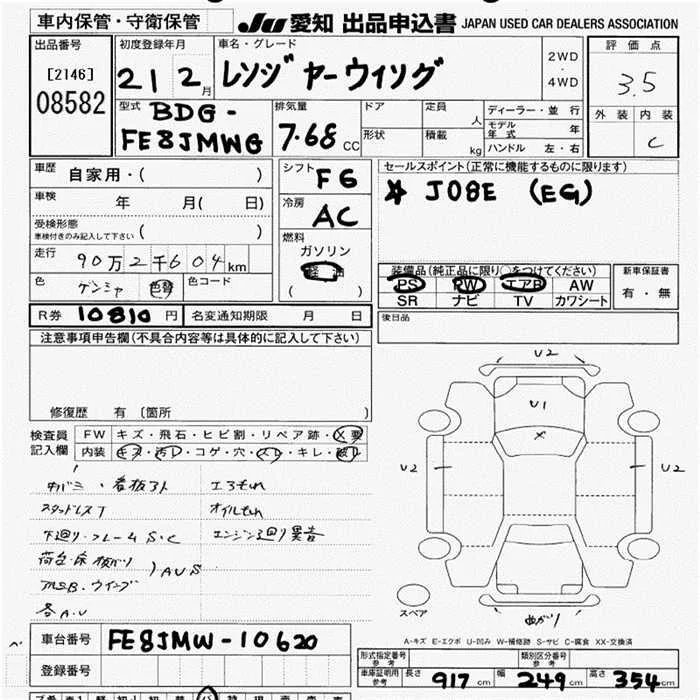 車内保管・守衛保管
JU 愛知 出品申込書 JAPAN USED CAR DEALERS ASSOCIATION
出品番号 [2146] 08582
初度登録年月 21 2月
車名・グレード レンジャーウイング
2WD・4WD
評価点 3.5
外装 内装 C
型式 BDG-FE8JMWG
排気量 7.68 CC
ドア 形状
定員 人
積載 kg
ディーラー・並行
モデル年式 年
ハンドル 左・右
車歴 自家用・( )
車検 年 月( 日)
受検形態 車検付きのみ記入して下さい ( )
走行 90万2千604km
色 ゲンシャ 色替 色コード
シフト F6
冷房 AC
燃料 ガソリン 軽油 ( )
セールスポイント(正常に機能するものに限ります)
☆ J08E (EG)
装備品(純正品に限り○をつけてください)
PS PW エアB AW
SR ナビ TV カワシート
新車保証書 有・無
R券 10810 円 名変通知期限 月 日
後日品
注意事項申告欄(不具合内容等は具体的に記入して下さい)
修復歴 有 〔箇所 〕
検査員記入欄
FW キズ・飛石・ヒビ割・リペア跡・X要
内装 キズ・汚レ・コゲ・穴・スレ・キレ・破レ
看板アト エアもれ
スタッドレスT オイルもれ
下廻り・フレームS・C エンジン廻り異音
荷台・床板ガリ
ASB・ウイング ) AUS
各A・U
U2
U1
X
U2 U2
スペア
めがり
A-キズ E-エクボ U-凹み W-補修跡 S-サビ C-腐食 XX-交換済
車台番号 FE8JMW-10620
登録番号
形式指定番号 参考 類別区分番号 参考
車庫証明用 参考 長さ 917cm 幅 249cm 高さ 354cm